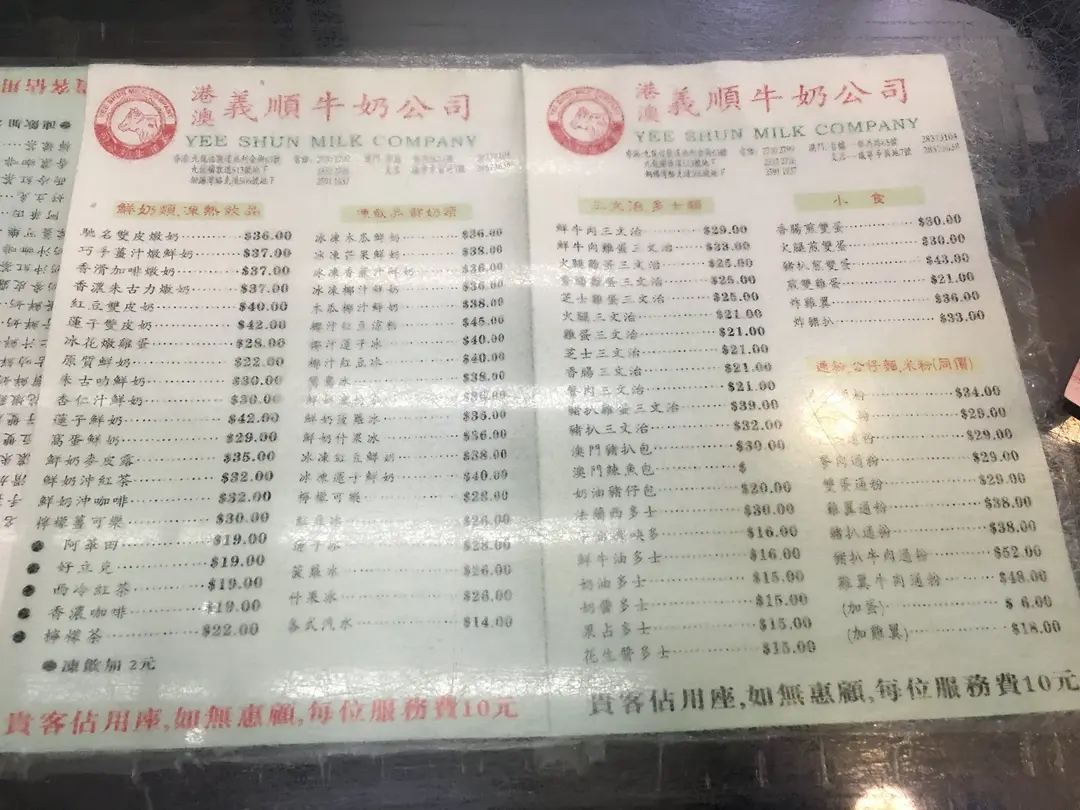 港澳 義順牛奶公司
YEE SHUN MILK COMPANY
鮮奶類,凍熱飲品
馳名雙皮燉奶 $36.00
巧手薑汁燉鮮奶 $37.00
香滑加啡燉奶 $37.00
香濃朱古力燉奶 $37.00
紅豆雙皮奶 $40.00
蓮子雙皮奶 $42.00
冰花燉雞蛋 $28.00
原質鮮奶 $22.00
朱古叻鮮奶 $30.00
杏仁汁鮮奶 $30.00
蓮子鮮奶 $42.00
窩蛋鮮奶 $29.00
鮮奶麥皮露 $35.00
鮮奶沖紅茶 $32.00
鮮奶沖咖啡 $32.00
檸檬薑可樂 $30.00
● 阿華田 $19.00
● 好立克 $19.00
● 西冷紅茶 $19.00
● 香濃咖啡 $19.00
● 檸檬茶 $22.00
●凍飲加 2元
凍飲品鮮奶類
冰凍木瓜鮮奶 $36.00
冰凍芒果鮮奶 $38.00
冰凍香蕉汁鮮奶 $36.00
冰凍椰汁鮮奶 $36.00
木瓜椰汁鮮奶 $38.00
椰汁紅豆 $45.00
椰汁蓮子冰 $40.00
椰汁紅豆冰 $40.00
鴛鴦冰 $38.00
鮮奶菠蘿冰 $36.00
鮮奶什果冰 $36.00
冰凍紅豆鮮奶 $38.00
冰凍蓮子鮮奶 $40.00
檸檬可樂 $28.00
紅豆冰 $26.00
蓮子冰 $28.00
菠蘿冰 $26.00
什果冰 $26.00
各式汽水 $14.00
貴客佔用座,如無惠顧,每位服務費10元
港澳 義順牛奶公司
YEE SHUN MILK COMPANY
三文治,多士類
鮮牛肉三文治 $29.00
鮮牛肉雞蛋三文治 $33.00
火腿雞蛋三文治 $25.00
香腸雞蛋三文治 $25.00
芝士雞蛋三文治 $25.00
火腿三文治 $21.00
雞蛋三文治 $21.00
芝士三文治 $21.00
香腸三文治 $21.00
餐肉三文治 $21.00
豬扒雞蛋三文治 $39.00
豬扒三文治 $32.00
澳門豬扒包 $30.00
澳門辣魚包 $
奶油豬仔包 $20.00
法蘭西多士 $30.00
多 $16.00
鮮牛油多士 $16.00
奶油多士 $15.00
奶醬多士 $15.00
果占多士 $15.00
花生醬多士 $15.00
小 食
香腸煎雙蛋 $30.00
火腿煎雙蛋 $30.00
豬扒煎雙蛋 $43.00
煎雙雞蛋 $21.00
炸雞翼 $36.00
炸豬扒 $33.00
通粉,公仔麵,米粉(同價)
粉 $34.00
粉 $29.00
通粉 $29.00
餐肉通粉 $29.00
雙蛋通粉 $29.00
雞翼通粉 $38.00
豬扒通粉 $38.00
豬扒牛肉通粉 $52.00
雞翼牛肉通粉 $48.00
(加蛋) $ 6.00
(加雞翼) $18.00
貴客佔用座,如無惠顧,每位服務費10元